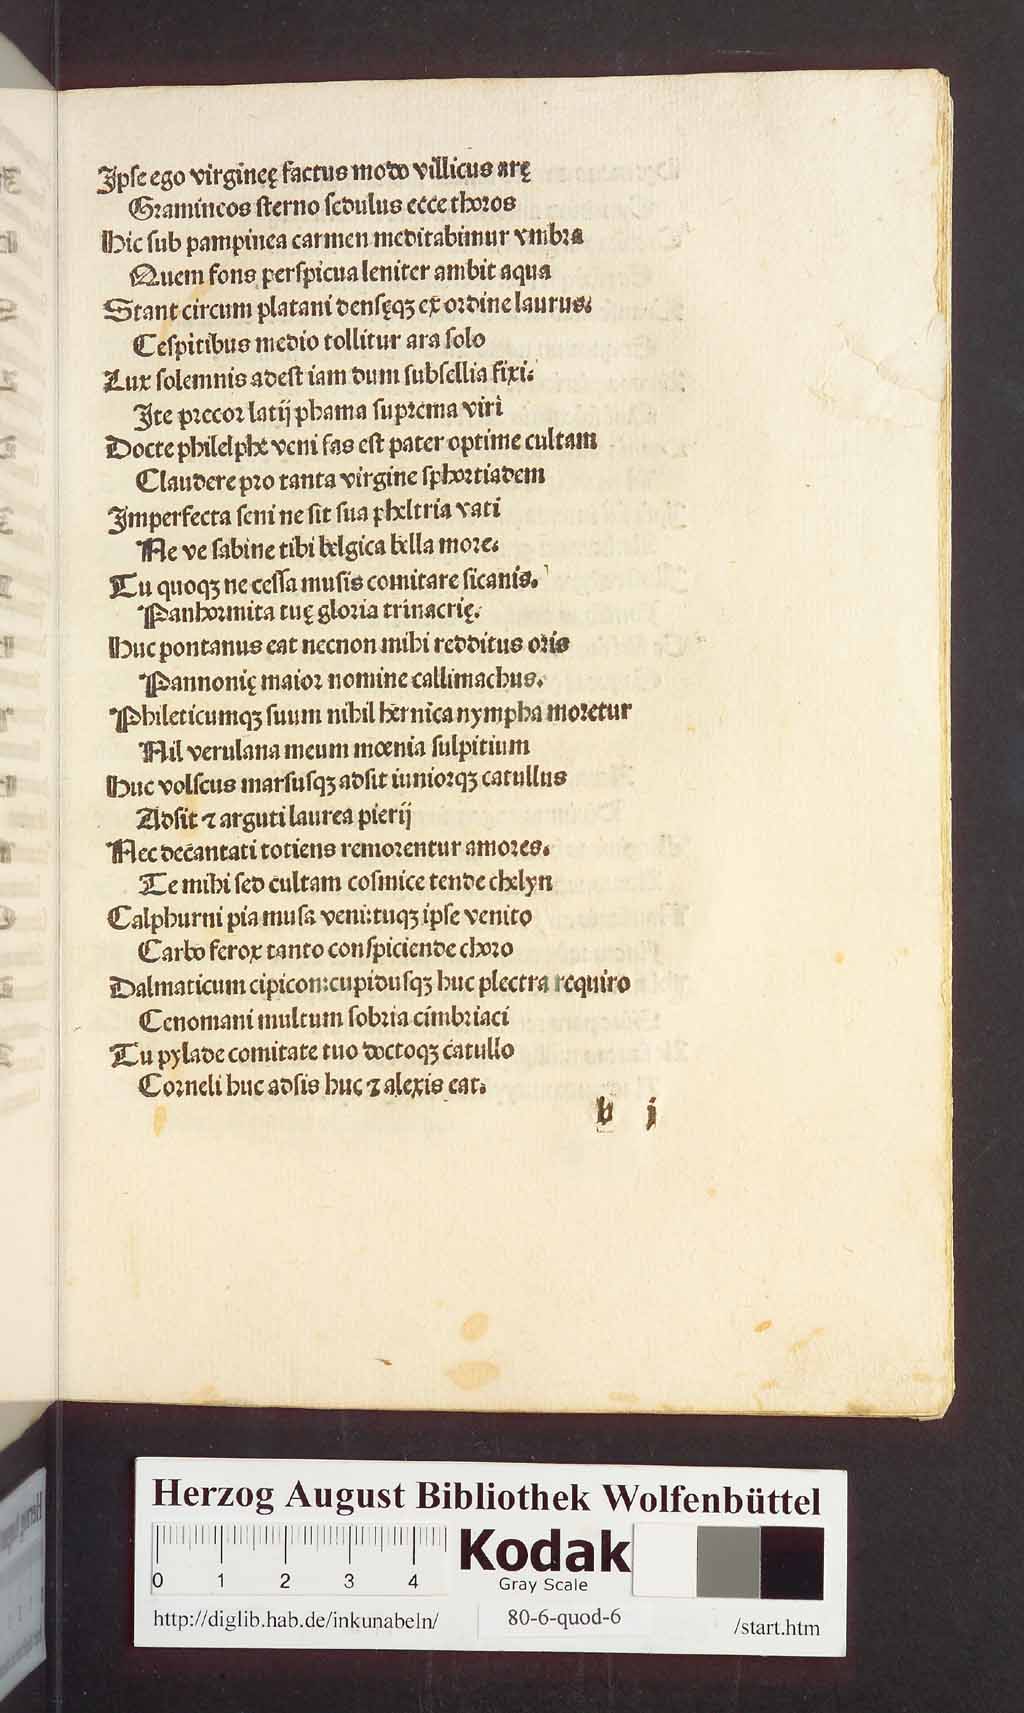 Ipſe ego virgineę factus modo villicus arę
Gramineos ſterno ſedulus ecce thoros
Hic ſub pampinea carmen meditabimur vmbra
Quem fons perſpicua leniter ambit aqua
Stant circum platani denſęqꝫ ex ordine laurus.
Ceſpitibus medio tollitur ara ſolo
Lux ſolemnis adeſt iam dum ſubſellia fixi.
Ite precor latij phama ſuprema viri
Docte philelphe veni fas eſt pater optime cultam
Claudere pro tanta virgine ſphortiadem
Imperfecta ſeni ne ſit ſua pheltria vati
Ne ve ſabine tibi belgica bella more.
Tu quoqꝫ ne ceſſa muſis comitare ſicanis.
Panhormita tuę gloria trinacrię.
Huc pontanus eat necnon mihi redditus oris
Pannonię maior nomine callimachus.
Phileticumqꝫ ſuum nihil hernica nympha moretur
Nil verulana meum mœnia ſulpitium
Huc volſcus marſuſqꝫ adſit iuniorqꝫ catullus
Adſit ⁊ arguti laurea pierij
Nec decantati totiens remorentur amores.
Te mihi ſed cultam coſmice tende chelyn
Calphurni pia muſa veni:tuqꝫ ipſe venito
Carbo ferox tanto conſpiciende choro
Dalmaticum cipicon:cupiduſqꝫ huc plectra requiro
Cenomani multum ſobria cimbriaci
Tu pylade comitate tuo doctoqꝫ catullo
Corneli huc adſis huc ⁊ alexis eat.
b j
Herzog August Bibliothek Wolfenbüttel
Kodak
Gray Scale
0 1 2 3 4
http://diglib.hab.de/inkunabeln/ 80-6-quod-6 /start.htm